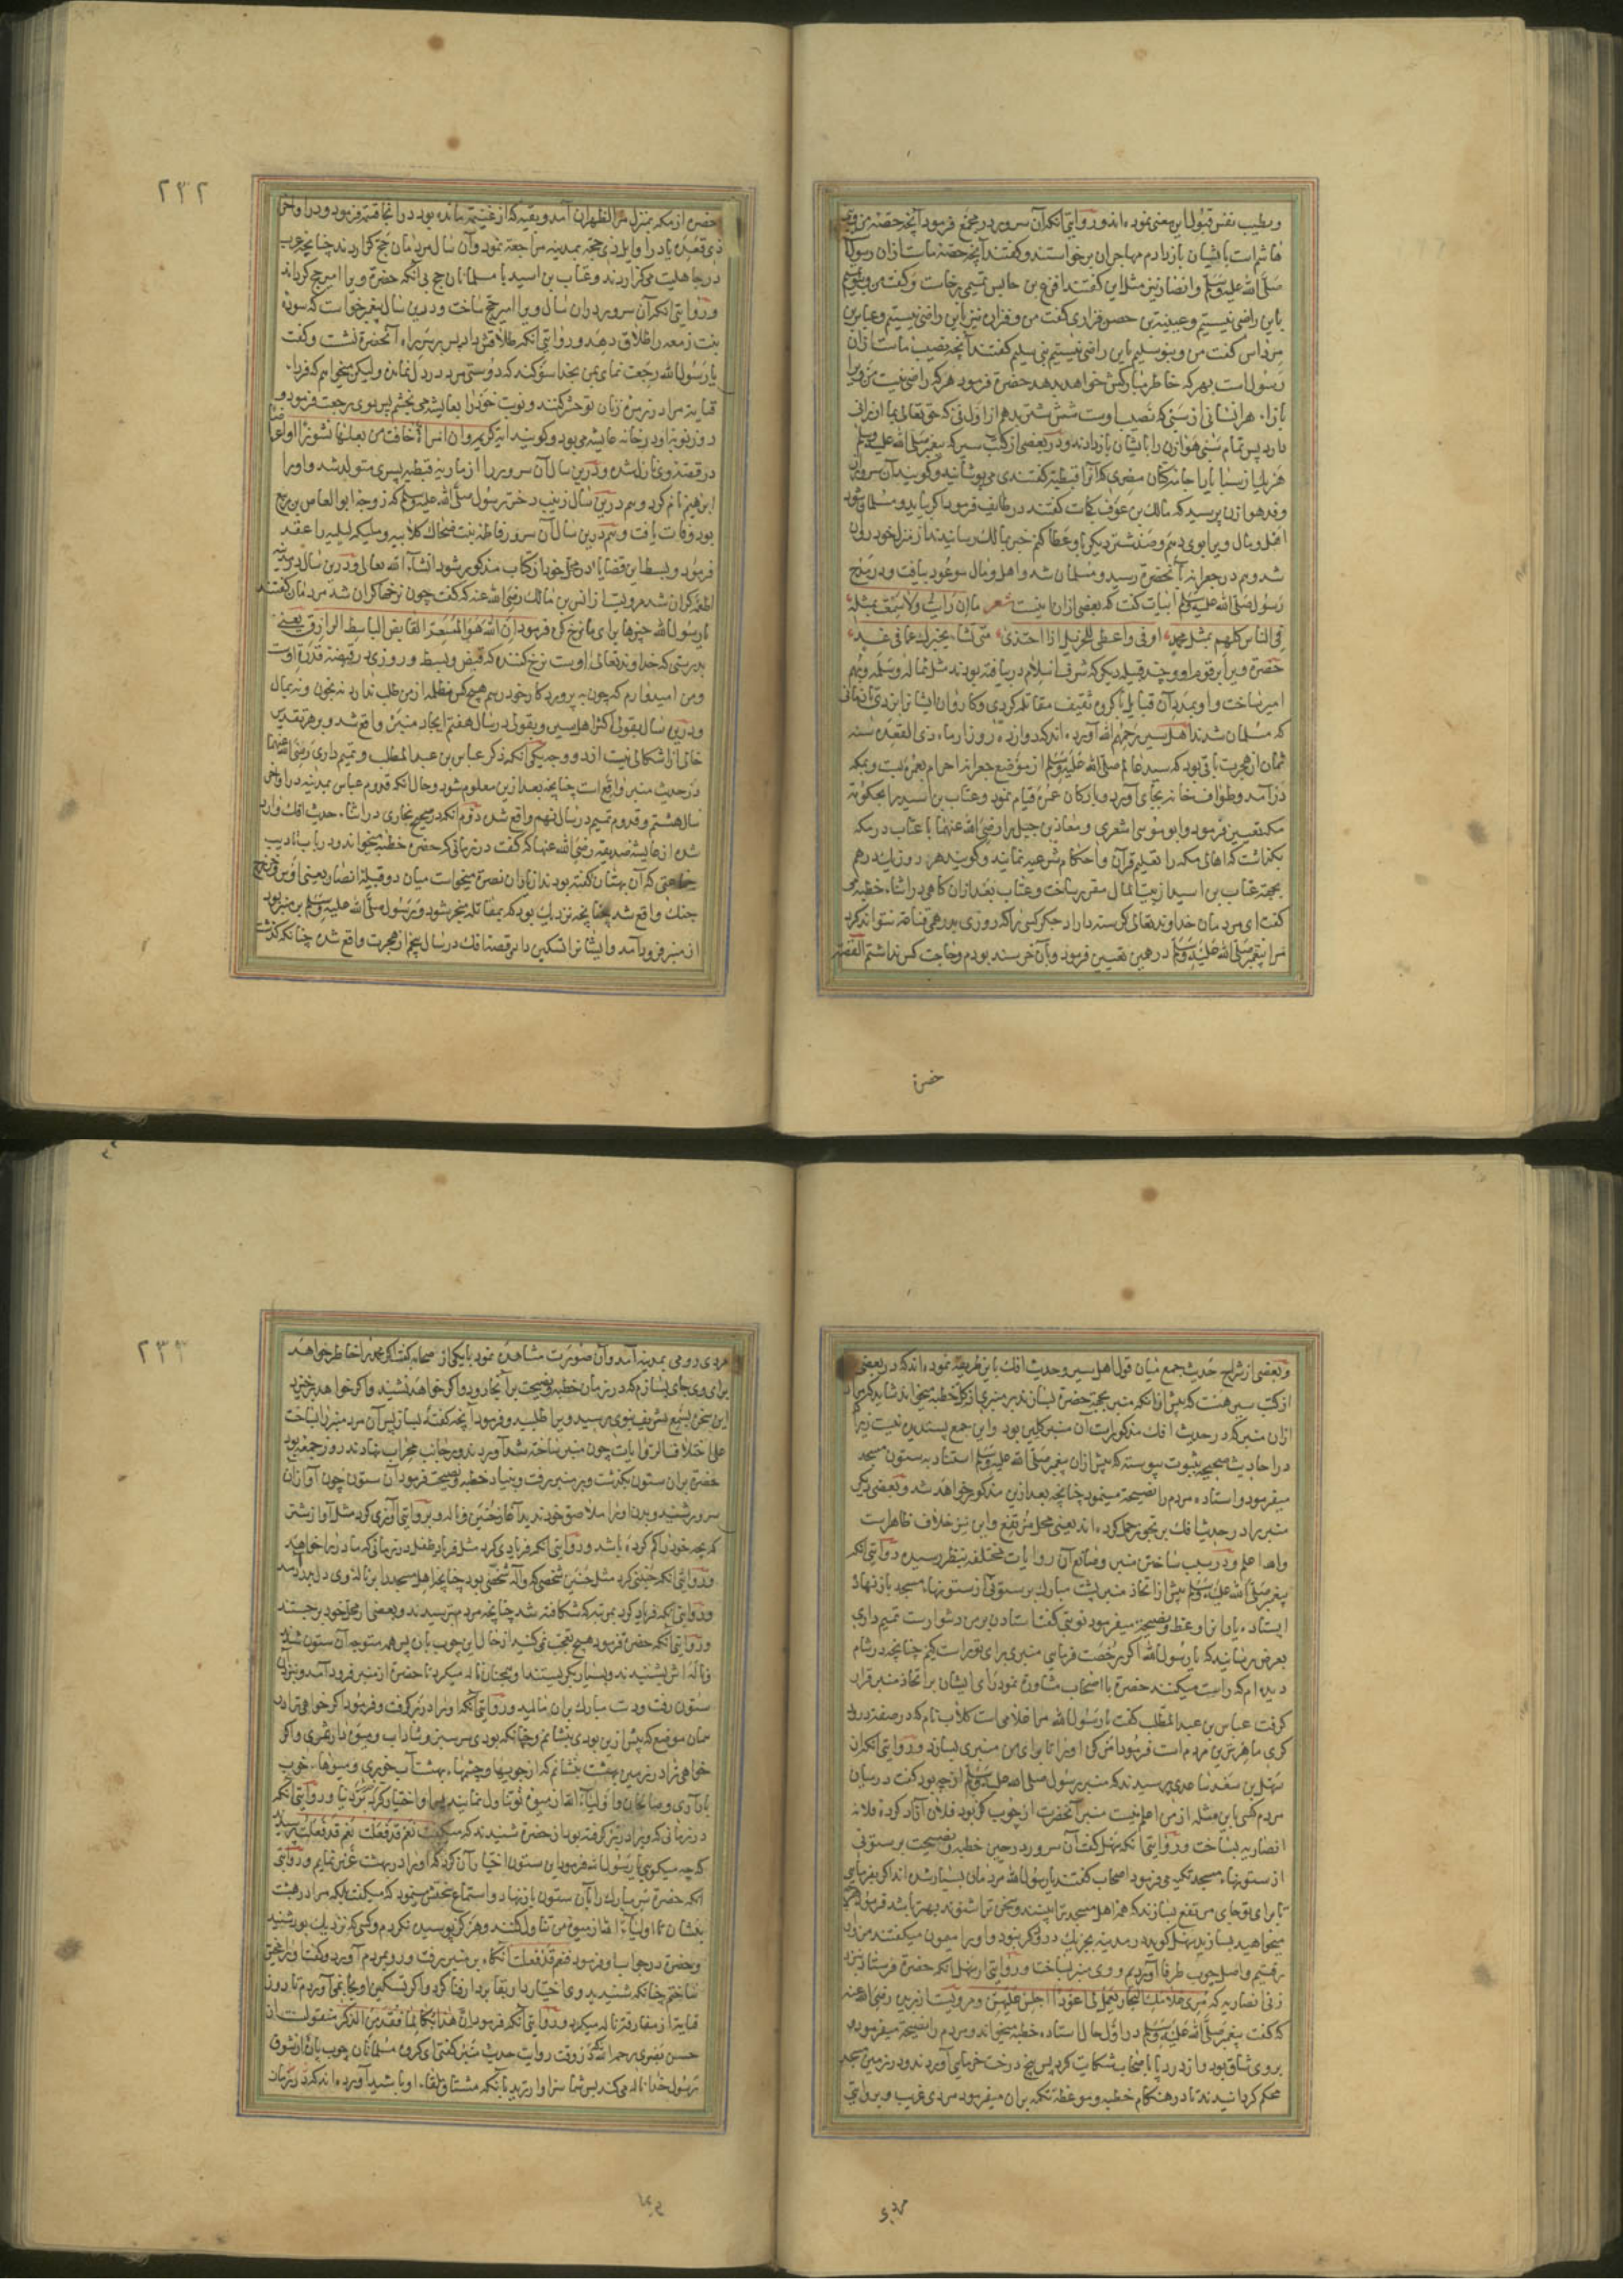 وبطیب نفس قبول این معنی نموده اند و در روایتی انکه آن سرور در مجمع فرمود آنچه حصّهٔ من و بنی
هاشم است بایشان باز دادم مهاجران برخواستند و گفتند آنچه حصّهٔ ماست از ان رسولست
صلّی الله علیه وسلم و انصار نیز مثل این گفتند اقرع بن حابس تمیمی برخاست و گفت من و بنو تمیم
باین راضی نیستیم و عیینة بن حصن فزاری گفت من و فزاره نیز باین راضی نیستیم و عباس بن
مرداس گفت من و بنو سلیم باین راضی نیستیم بنی سلیم گفتند آنچه نصیب ماست از ان
رسول است بهر که خاطر مبارکش خواهد بدهد حضرة فرمود هر که راضی نیست
دارد پس تمام سبی هوازن را بایشان باز دادند و در بعضی از کتب سیر که پیغمبر صلی الله علیه وسلم
وفد هوازن پرسید که مالک بن عوف کجاست گفتند در طایف فرمود اگر بیاید و مسلمان شود
اهل و مال ویرا بوی دهم و صد شتر دیکر باو عطا کنم خبر بمالک رسانیدند از منزل خود روان
شد و هم در جعرانه آنحضرة رسید و مسلمان شد و اهل و مال موعود بیافت و در مدح
رسول صلّی الله علیه وسلم ابیات گفت که بعضی از ان اینست شعر ما ان رایت ولا سمعت بمثله
فی الناس کلهم بمثل محمد اوفی واعطی للجزیل اذا اجتدی متی تشاء یخبرک عما فی غد
حضرة ویرا بر قوم او و چند قبیله دیکر که شرف اسلام دریافته بودند مثل ثماله و سلمه و فهم
امیر ساخت و او بمدد آن قبایل با گروه ثقیف مقاتله کردی و کاروان ایشانرا بزدی تا زمانی
که مسلمان شدند اهل سیر رحمهم الله آورده اند که دوازده روز از ماه ذی القعده سنه
ثمان از هجرت باقی بود که سید عالم صلی الله علیه وسلم از موضع جعرانه احرام بعمره بست و بمکه
درآمد و طواف خانه بجای آورد و بارکان عمره قیام نمود و عتاب بن اسید را بحکومة
مکه تعیین فرمود و ابو موسی اشعری و معاذ بن جبل را رضی الله عنهما با عتاب در مکه
بگذاشت که اهالی مکه را تعلیم قرآن و احکام شرعیه نمایند و گویند هر روز یک درهم
بجهة عتاب بن اسید از بیت المال مقرر ساخت و عتاب بعد از ان گاهی در اثناء خطبه می
گفت ای مردمان خداوند تعالی گرسنه داراد جگر کسی را که روزی بدرهمی قناعة نتواند کرد
مرا پیغمبر صلی الله علیه وسلم درهمی تعیین فرمود و بآن خرسند بودم و حاجت کس نداشتم القصه
حضرة
۲۳۲
حضرة از مکه بمنزل مرّ الظهران آمد و بقیه که از غنیمة مانده بود در انجا قسمة فرمود و در اواخر
ذی قعده یا در اوایل ذی حجه بمدینه مراجعة نمود و آن سال مردمان حج گزاردند چنانچه عرب
در جاهلیت می‌گزاردند و عتاب بن اسید با مسلمانان حج بی آنکه حضرة ویرا امیر حج گرداند
و در روایتی انکه آن سرور در ان سال ویرا امیر حج ساخت و درین سال پیغمبر خواست که سوده
بنت زمعه را طلاق دهد و در روایتی انکه طلاقش داد پس بر سر راه آنحضرة نشست و گفت
یا رسول الله رجعت نمای بمن بخدا سوگند که دوستی مرد در دل نمانده ولیکن میخواهم که فردای
قیامة مرا در زمره زنان تو حشر کنند و نوبت خود را بعایشه می بخشم پس بوی رجعت فرمود و
روز نوبه او در خانه عایشه می بود و گویند آیه کریمه وان امراة خافت من بعلها نشوزا او اعراضا
در قصه وی نازل شده و درین سال آن سرور را از ماریه قبطیه پسری متولد شد و اورا
ابرهیم نام کرد و هم درین سال زینب دختر رسول صلی الله علیه وسلم که زوجه ابو العاص بن ربیع
بود وفات یافت و هم درین سال آن سرور فاطمه بنت ضحاک کلابیه و ملیکه لیثیه را عقد
فرمود و بسط این قضایا در محل خود از کتاب مذکور شود انشاء الله تعالی و درین سال در مدینه
اطعمه گران شد مرویست از انس بن مالک رضی الله عنه که گفت چون نرخها گران شد مردمان گفتند
یا رسول الله چیزها برای ما نرخ کن فرمود ان الله هو المسعر القابض الباسط الرازق یعنی
بدرستی که خداوند تعالی اوست نرخ کننده که قبض و بسط و روزی در قبضه قدرة اوست
و من امیدوارم که چون به پروردگار خود رسم هیچ کس مظلمه از من طلب ندارد نه بخون و نه بمال
و درین سال بقولی اکثر اهل سیر و بقولی در سال هفتم ایجاد منبر واقع شد و بر هر تقدیر
خالی از اشکالی نیست از دو وجه یکی انکه ذکر عباس بن عبد المطلب و تمیم داری رضی الله عنهما
در حدیث منبر واقعست چنانچه بعد ازین معلوم شود و حال انکه قدوم عباس بمدینه در اواخر
سال هشتم و قدوم تمیم در سال نهم واقع شده دوم انکه در صحیح بخاری در اثناء حدیث افک وارد
شده از عایشه صدیقه رضی الله عنها که گفت در زمانی که حضرة خطبه میخواند و در باب تادیب
جماعتی که آن بهتان گفته بودند از یاران نصرة میخواست میان دو قبیله انصار یعنی اوس و خزرج
جنک واقع شد چنانچه نزدیک بود که بمقاتله منجر شود و رسول صلی الله علیه وسلم بر منبر بود
از منبر فرود آمد و ایشانرا تسکین داد و قصه افک در سال پنجم از هجرت واقع شده چنانکه گذشت
و بعضی از شراح حدیث جمع میان قول اهل سیر و حدیث افک باین طریقه نموده اند که در بعضی
از کتب سیر هست که پیش از انکه منبر بجهة حضرة بسازند بر منبری از گل خطبه میخواند شاید که مراد
ازان منبر که در حدیث افک مذکورست آن منبر گلین بود و این جمع پسندیده نیست زیرا
در احادیث صحیحه بثبوت پیوسته که پیش از ان پیغمبر صلی الله علیه وسلم استناد به ستون مسجد
میفرمود و استاده مردم را نصیحة مینمود چنانچه بعد ازین مذکور خواهد شد و بعضی ذکر
منبر را در حدیث افک بر تجوز حمل کرده اند یعنی محل مرتفع و این نیز خلاف ظاهرست
والله اعلم و در سبب ساختن منبر و صانع آن روایات مختلفه بنظر رسیده در روایتی انکه
پیغمبر صلی الله علیه وسلم پیش از اتخاذ منبر پشت مبارک بر ستونی از ستونهاء مسجد باز نهاده
ایستاده یارانرا وعظ و نصیحة میفرمود نوبتی گفت استادن بر من دشوارست تمیم داری
بعرض رسانید که یا رسول الله اگر رخصت فرمایی منبری برای تو راست کنم چنانچه در شام
دیده ام که راست میکنند حضرة با اصحاب مشاورة نمود رای ایشان بر اتخاذ منبر قرار
گرفت عباس بن عبد المطلب گفت یا رسول الله مرا غلامی است کلاب نام که در صفة درود
گری ماهرترین مردم است فرمود امر کن اورا تا برای من منبری بسازد و در روایتی انکه از
سهل بن سعد ساعدی پرسیدند که منبر رسول صلی الله علیه وسلم از چه بود گفت در میان
مردم کسی باین مسله از من اعلم نیست منبر آنحضرت از چوب گز بود فلان آزاد کرده فلانه
انصاریه بساخت و در روایتی انکه سهل گفت آن سرور در حین خطبه و نصیحت بر ستونی
از ستونهاء مسجد تکیه می فرمود اصحاب گفتند یا رسول الله مردمان بسیار شده اند اگر بفرمایی
تا برای تو جای مرتفع بسازند که همه اهل مسجد ترا ببینند و سخن ترا شنوند بهتر باشد فرمود اگر
میخواهید بسازید سهل گوید در مدینه بجز یک درودگر نبود و اورا میمون میگفتند من و او
رفتیم و اصل چوب طرفا آوردیم و وی منبر بساخت و در روایتی از سهل انکه حضرة فرستاد نزد
زنی انصاریه که مری غلامک النجار یعمل لی اعوادا اجلس علیهن و مرویست از بریده رضی الله عنه
که گفت پیغمبر صلی الله علیه وسلم در اول حال استاده خطبه میخواند و مردم را نصیحة میفرمود و
بروی شاق بود و از درد پا باصحاب شکایت کرد پس بیخ درخت خرمایی آوردند و در زمین مسجد
محکم گردانیدند تا در هنکام خطبه و موعظه تکیه بران میفرمود مردی غریب و بروایتی
مردی
۲۳۳
مردی رومی بمدینه آمد و آن صورت مشاهده نمود با یکی از صحابه گفت اگر محمد را خاطر خواهد
برای وی جای بسازم که در زمان خطبه و نصیحت بر آنجا رود و اگر خواهد نشیند و اگر خواهد برخیزد
این سخن بسمع شریف نبوی رسید ویرا طلبید و فرمود آنچه گفته بساز پس آن مرد منبر را بساخت
علی اختلاف الروایات چون منبر ساخته شد آوردند و بر جانب محراب نهادند روز جمعه بود
حضرة بران ستون بگذشت و بر منبر برفت و بنیاد خطبه و نصیحت فرمود آن ستون چون آواز ان
سرور شنید و بدن اورا ملاصق خود ندید آغاز حنین و ناله و بروایتی آوازی کرد مثل آواز شتری
که بچه خود را گم کرده باشد و در روایتی انکه فریادی کرد مثل فریاد طفل در زمانی که مادر را خواهد
و در روایتی انکه حنینی کرد مثل حنین شخصی که واله شخصی بود چنانچه اهل مسجد را بناله وی دل بدرد آمد
و در روایتی انکه فریاد کرد بمرتبه که شکافته شد چنانچه مردم بترسیدند و بعضی از محل خود برجستند
و در روایتی انکه حضرة فرمود هیچ تعجب نمی کنید از حال این چوب یاران پس همه متوجه آن ستون شدند
و ناله اش بشنیدند و بسیار بگریستند و همچنان ناله میکرد تا حضرة از منبر فرود آمد و نزدیک آن
ستون رفت و دست مبارک بران مالید و در روایتی انکه اورا در بر گرفت و فرمود اگر خواهی ترا در
همان موضع که پیش ازین بودی بنشانم و چنانکه بودی سرسبز و شاداب و میوه دار شوی و اگر
خواهی ترا در زمین بهشت بنشانم که از جویها و چشمهاء بهشت آب خوری و میوهاء خوب
بار آری و صالحان و اولیاء الله از میوه تو تناول نمایند پس او اختیار آخرة کرد بر دنیا و در روایتی انکه
در زمانی که ویرا در بر گرفته بود از حضرة شنیدند که میگفت نعم قد فعلت نعم قد فعلت پرسیدند
که چه میگویی یا رسول الله فرمود این ستون اختیار آن کرد که اورا در بهشت غرس نمایم و در روایتی
انکه حضرة سر مبارک را بآن ستون باز نهاد و استماع سخنش مینمود که میگفت بلکه مرا در بهشت
بنشان تا اولیاء الله از میوه من تناول کنند و هرگز پوسیده نگردم و کسی که نزدیک بود شنید
و حضرة در جواب او فرمود فنعم قد فعلت آنگاه بر منبر برفت و رو بمردم آورد و گفت اورا مخیر
ساختم چنانکه شنیدید وی اختیار دار بقا بر دار فنا کرد و اگر تسکین او بجا نمی آوردم تا روز
قیامة از مفارقة ناله میکرد و در روایتی انکه فرمود ان هذا بکا لما فقد من الذکر منقولست از
حسن بصری رحمه الله که در وقت روایت حدیث منبر گفتی ای گروه مسلمانان چوب پاره از شوق
رسول خدا ناله می‌کند پس شما سزاوارترید بانکه مشتاق لقاء او باشید آورده اند که در زمان